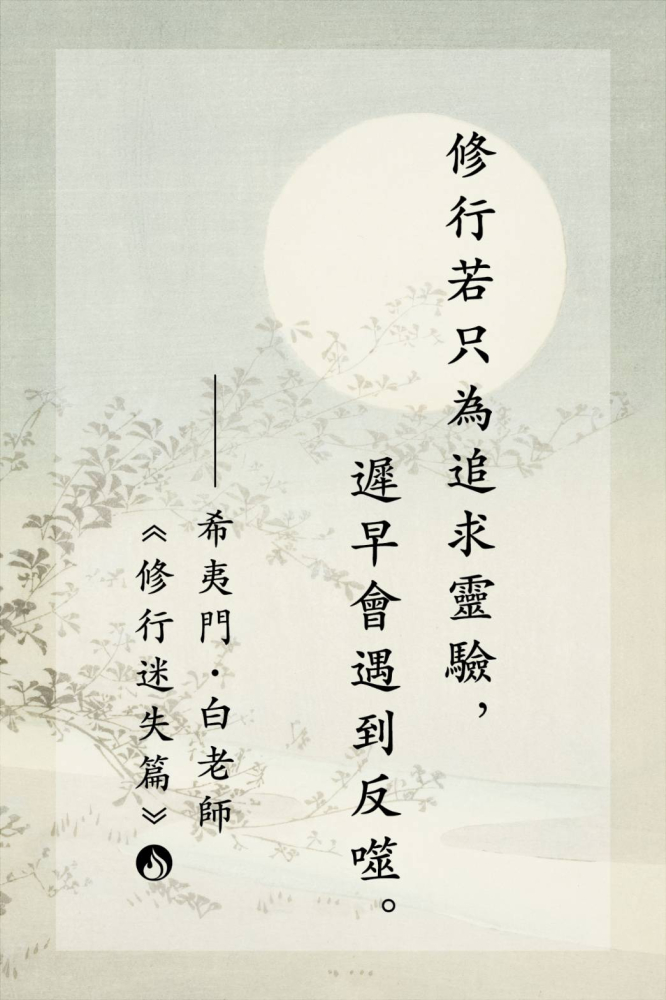 修行若只為追求靈驗，
遲早會遇到反噬。
——希夷門·白老師
《修行迷失篇》